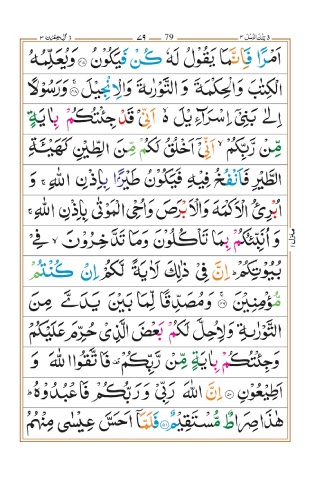 تلك الرسل ٣ ٧٩ 79 اٰل عمرٰن ٣
اَمْرًا فَاِنَّمَا يَقُوْلُ لَهٗ كُنْ فَيَكُوْنُ ۝٤٧ وَيُعَلِّمُهُ
الْكِتٰبَ وَالْحِكْمَةَ وَالتَّوْرٰىةَ وَالْاِنْجِيْلَ ۝٤٨ وَرَسُوْلًا
اِلٰى بَنِيْٓ اِسْرَآءِيْلَ ۙ۬ اَنِّيْ قَدْ جِئْتُكُمْ بِاٰيَةٍ
مِّنْ رَّبِّكُمْ ۙ اَنِّيْٓ اَخْلُقُ لَكُمْ مِّنَ الطِّيْنِ كَهَيْـَٔةِ
الطَّيْرِ فَاَنْفُخُ فِيْهِ فَيَكُوْنُ طَيْرًۢا بِاِذْنِ اللّٰهِ ۚ وَ
اُبْرِئُ الْاَكْمَهَ وَالْاَبْرَصَ وَاُحْيِ الْمَوْتٰى بِاِذْنِ اللّٰهِ ۚ
وَاُنَبِّئُكُمْ بِمَا تَاْكُلُوْنَ وَمَا تَدَّخِرُوْنَ ۙ فِيْ
بُيُوْتِكُمْ ؕ اِنَّ فِيْ ذٰلِكَ لَاٰيَةً لَّكُمْ اِنْ كُنْتُمْ
مُّؤْمِنِيْنَ ۝٤٩ وَمُصَدِّقًا لِّمَا بَيْنَ يَدَيَّ مِنَ
التَّوْرٰىةِ وَلِاُحِلَّ لَكُمْ بَعْضَ الَّذِيْ حُرِّمَ عَلَيْكُمْ
وَجِئْتُكُمْ بِاٰيَةٍ مِّنْ رَّبِّكُمْ ۫ فَاتَّقُوا اللّٰهَ وَ
اَطِيْعُوْنِ ۝٥٠ اِنَّ اللّٰهَ رَبِّيْ وَرَبُّكُمْ فَاعْبُدُوْهُ ؕ
هٰذَا صِرَاطٌ مُّسْتَقِيْمٌ ۝٥١ فَلَمَّاۤ اَحَسَّ عِيْسٰى مِنْهُمُ
منزل ١